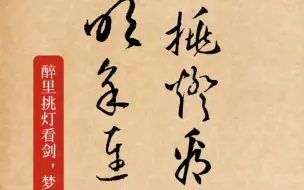 挑燈看
吹角連
醉里挑灯看剑，梦